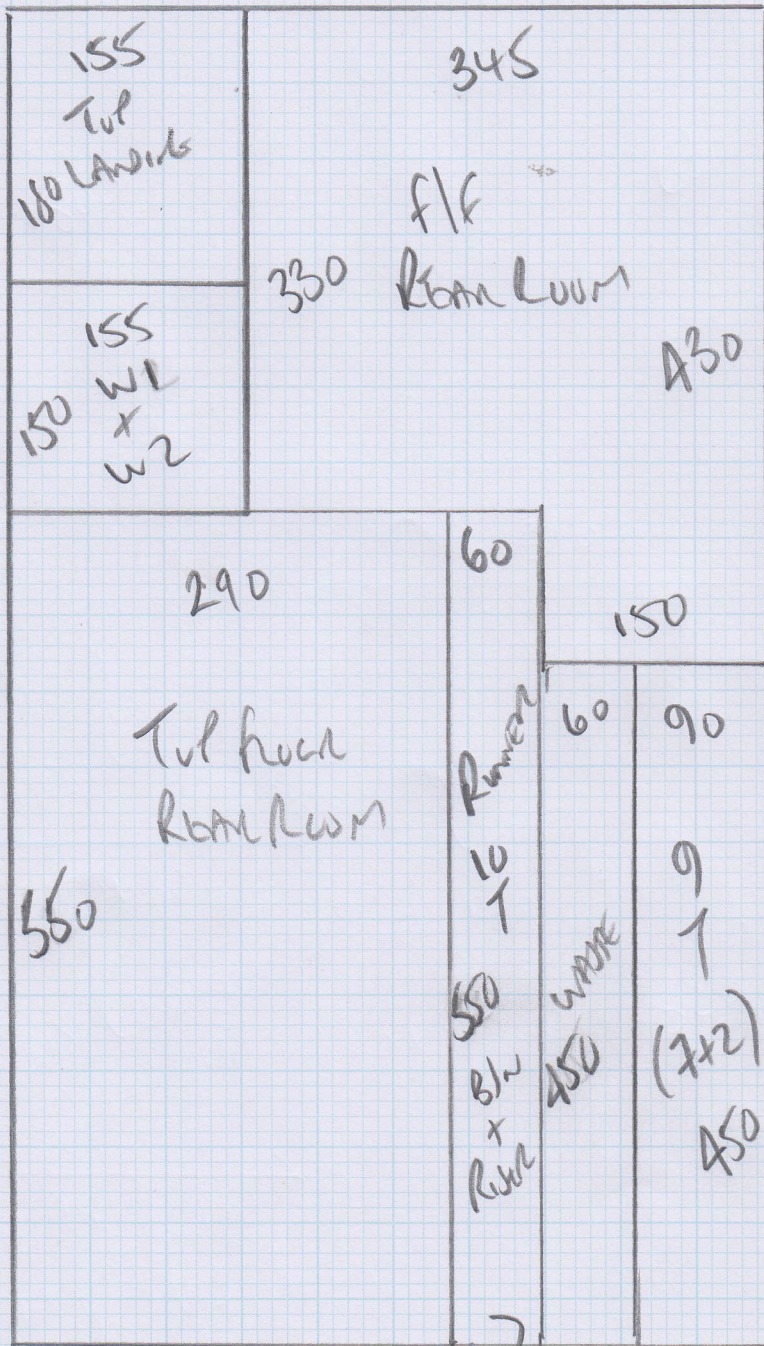 155
Top
180 LANDING
345
F/F
REAR ROOM
330
430
155
W1
+
W2
150
290
Top Floor
REAR ROOM
550
60
Runner
10
T
550
B/N
+
Riser
150
60
WASTE
450
90
9
T
(7+2)
450